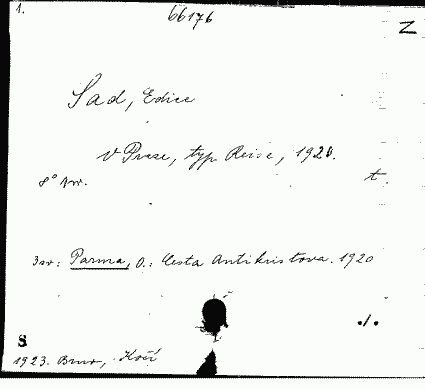 1.
66176
Z
Sad, Edice
V Praze, typ. Reise, 1920.
8° sv. t.
3 sv: Parma, O.: Cesta Antikristova. 1920
./.
S
1923. Brno, Kočí